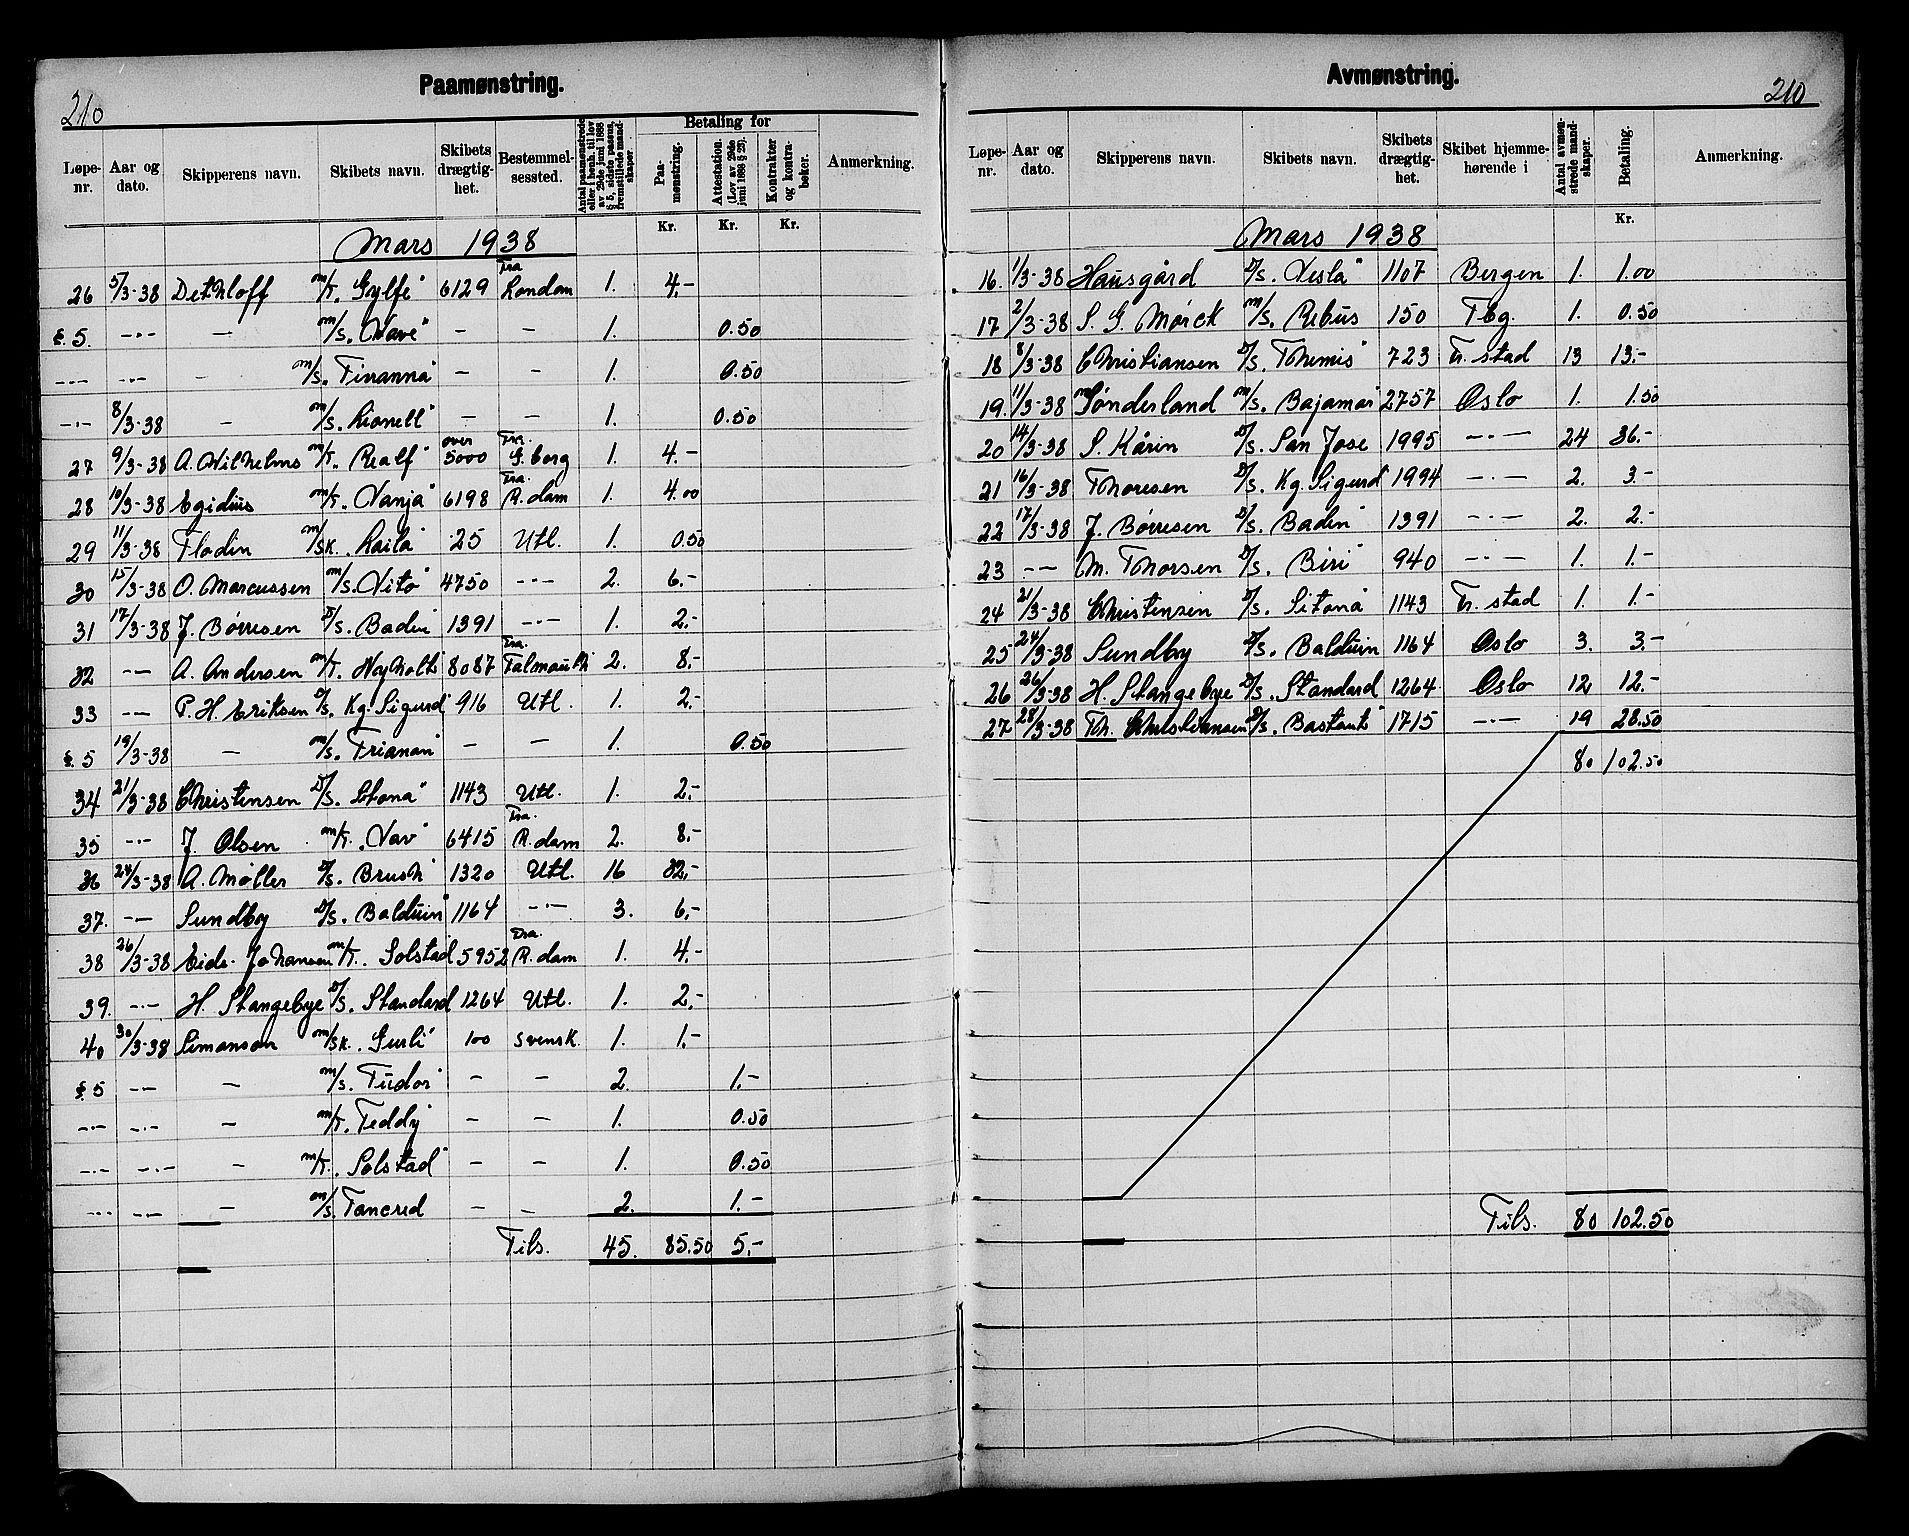 210
Paamønstring.
Løpe-nr. | Aar og dato. | Skipperens navn. | Skibets navn. | Skibets drægtig-het. | Bestemmel-sessted. | Antal paamønstrede eller i henh. til lov av 29de juni 1888 § 5, sidste passus, fremstillede mand-skaper. | Betaling for | Paa-mønstring. | Attestation. (Lov av 29de juni 1888 § 25). | Kontrakter og kontra-bøker. | Anmerkning.
Kr. | Kr. | Kr.
Mars 1938
26 5/3-38 Dethloff m/t. Gylfe" 6129 Fra London 1. 4.-
§.5. -"- - m/s. Nave" - - 1. 0.50
-"- -"- - m/s. Tiranna" - - 1. 0.50
-"- 8/3-38 - m/s. Lionell" - - 1. 0.50
27 9/3-38 A. Wilhelms m/t. Realf" over 5000 Fra. G.borg 1. 4.-
28 10/3-38 Egidius m/t. Vanja" 6198 Fra. R.dam 1. 4.00
29 11/3-38 Flodin m/sk. Laila" 25 Utl. 1. 0.50
30 15/3-38 O. Marcussen m/s. Vito" 4750 -"- 2. 6.-
31 17/3-38 J. Børresen D/s. Badin" 1391 -"- 1. 2.-
32 -"- A. Andersen m/t. Nyholt" 8087 Fra. Falmouth 2. 8.-
33 -"- P.H. Eriksen D/s. Kg. Sigurd" 916 Utl. 1. 2.-
§.5 19/3-38 - m/s. Trianon" - - 1. 0.50
34 21/3-38 Christensen D/s. Sitona" 1143 Utl. 1. 2.-
35 -"- J. Olsen m/t. Vav" 6415 Fra. R.dam 2. 8.-
36 24/3-38 A. Møller D/s. Brush" 1320 Utl. 16 32.-
37. -"- Sundby D/s. Balduin" 1164 -"- 3. 6.-
38 26/3-38 Eids-Johansen m/t. Solstad 5952 Fra. R.dam 1. 4.-
39. -"- H. Stangebye D/s. Standard 1264 Utl. 1. 2.-
40 30/3-38 Simonson m/sk. Gurli" 100 svensk. 1. 1.-
§.5 -"- - m/s. Tudor" - - 2. 1.-
-"- -"- - m/t. Teddy" - - 1. 0.50
-"- -"- - m/t. Solstad" - - 1. 0.50
-"- -"- - m/s. Tancred - - 2. 1.-
Tils. 45. 85.50 5.-
Avmønstring.
210
Løpe-nr. | Aar og dato. | Skipperens navn. | Skibets navn. | Skibets drægtig-het. | Skibet hjemme-hørende i | Antal avmøn-strede mand-skaper. | Betaling. | Anmerkning.
Kr.
Mars 1938
16. 1/3-38 Hausgård D/s. Vesla" 1107 Bergen 1. 1.00
17 2/3-38 S.G. Mørck m/s. Rebus 150 Tbg. 1. 0.50
18 8/3-38 Christiansen D/s. Themis" 723 Fr.stad 13 13.-
19. 11/3-38 Sønderland m/s. Bajamar 2757 Oslo 1. 1.50
20 14/3-38 S. Kårin D/s. San Jose" 1995 -"- 24 36.-
21 16/3-38 Thoresen D/s. Kg. Sigurd 1994 -"- 2. 3.-
22 17/3-38 J. Børresen D/s. Badin" 1391 -"- 2. 2.-
23 -"- M. Thorsen D/s. Biri" 940 -"- 1. 1.-
24 21/3-38 Christensen D/s. Sitona" 1143 Fr.stad 1. 1.-
25 24/3-38 Sundby D/s. Balduin 1164 Oslo 3. 3.-
26 26/3-38 H. Stangebye D/s. Standard 1264 Oslo 12 12.-
27 28/3-38 Th. Christiansen D/s. Bastant" 1715 -"- 19 28.50
80 102.50
Tils. 80 102.50